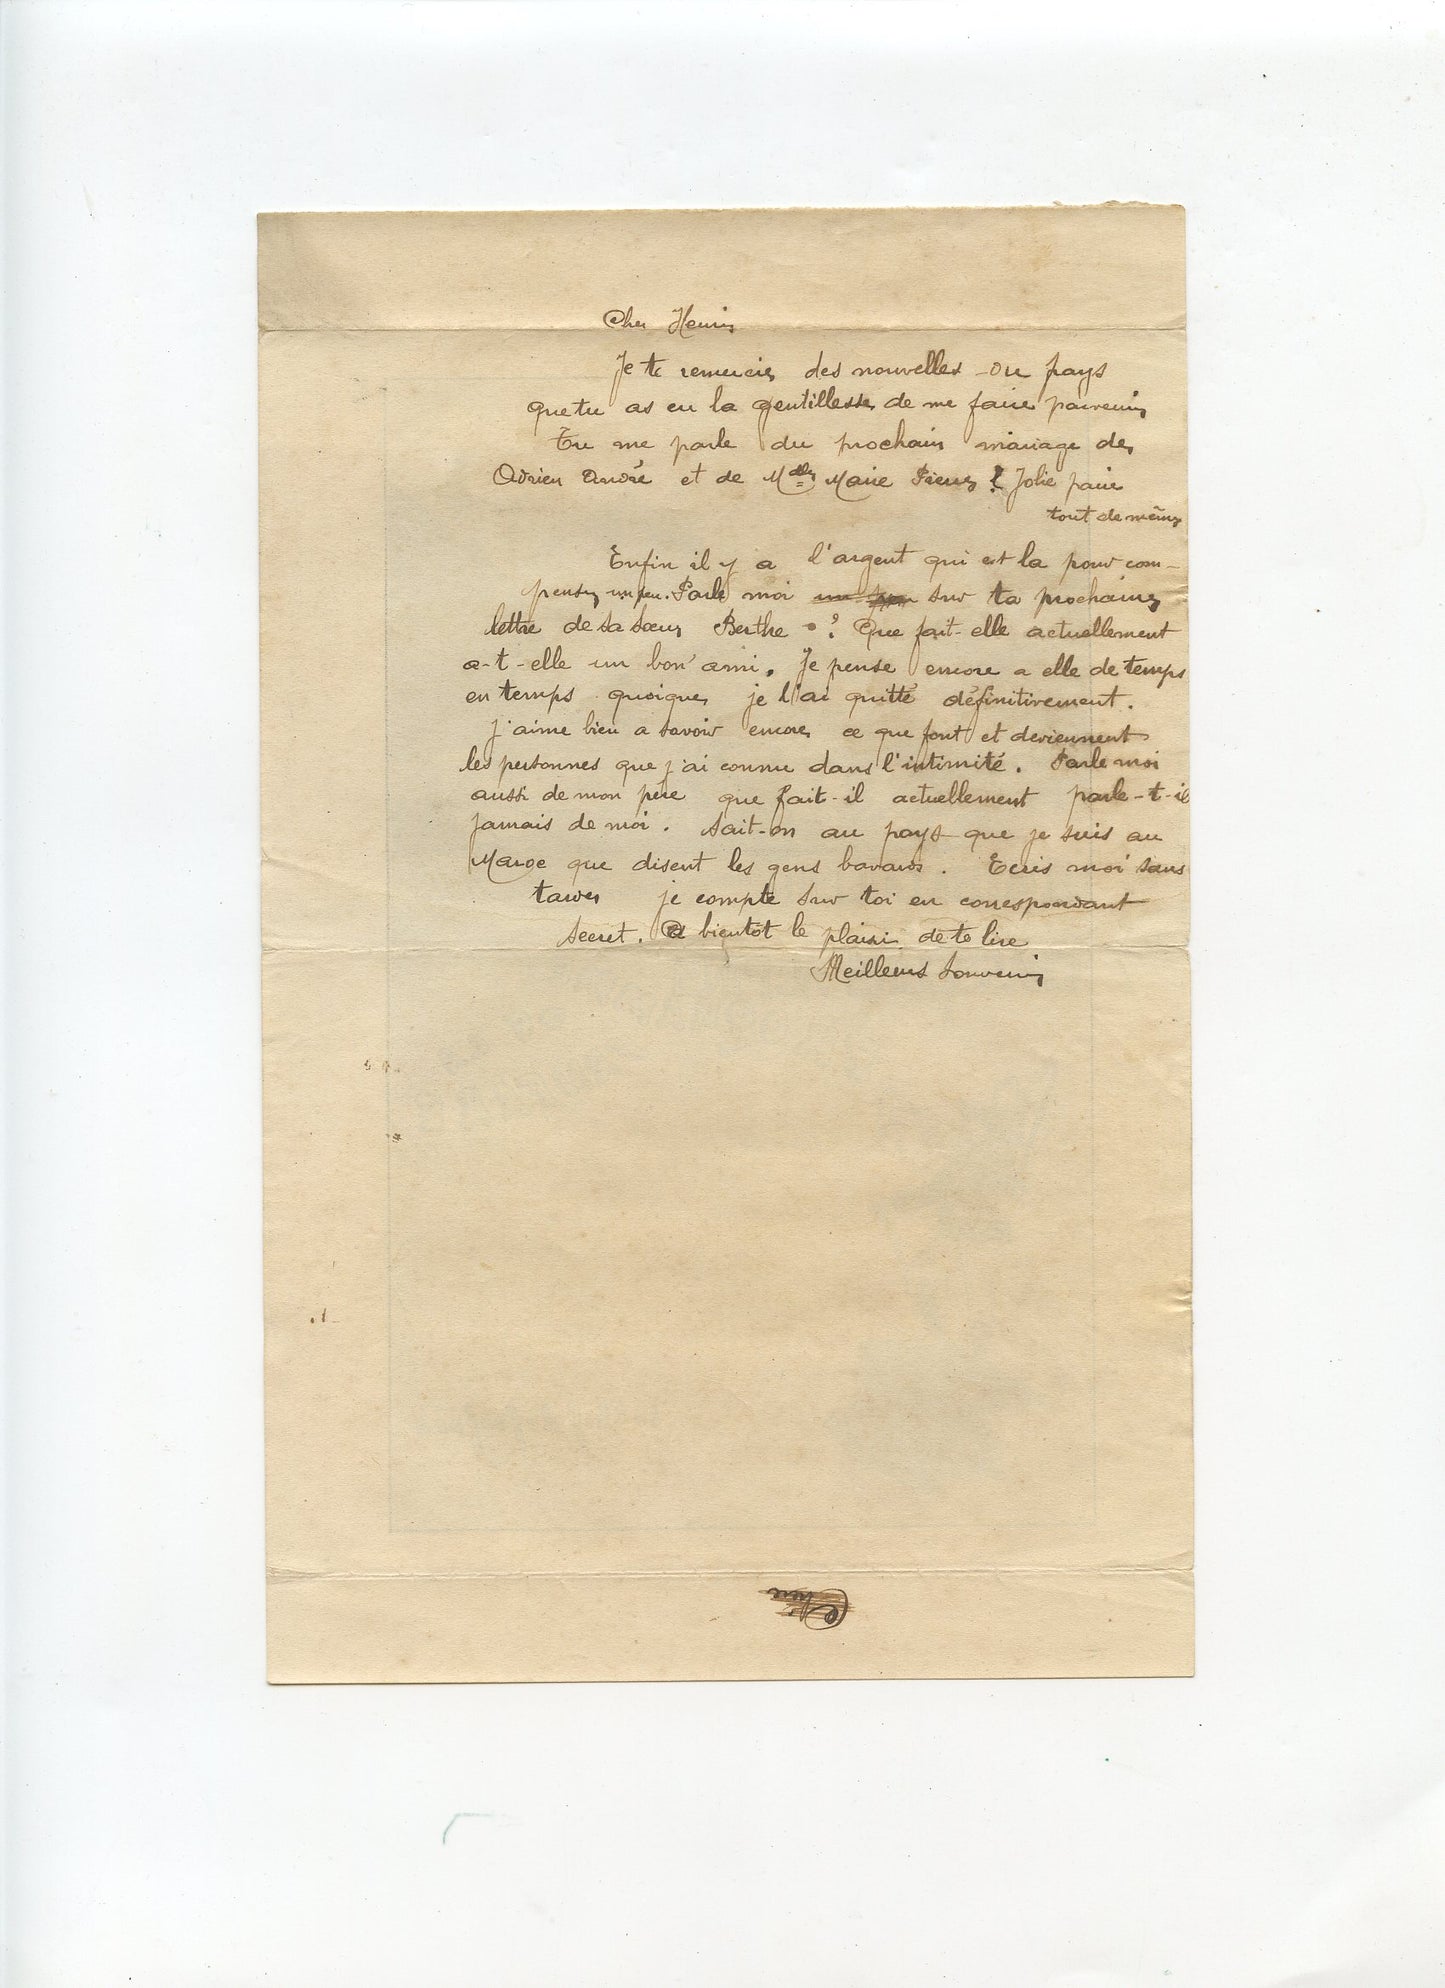 Cher Henri
Je te remercie des nouvelles du pays
que tu as eu la gentillesse de me faire parvenir
Tu me parle du prochain mariage de
Adrien André et de Mdlle Marie Pierre ! Jolie paire
tout de même
Enfin il y a l'argent qui est la pour com-
penser un peu. Parle moi un peu sur ta prochaine
lettre de sa sœur Berthe ? Que fait-elle actuellement
a-t-elle un bon ami. Je pense encore a elle de temps
en temps quoique je l'ai quitté définitivement.
J'aime bien a savoir encore ce que font et deviennent
les personnes que j'ai connu dans l'intimité. Parle moi
aussi de mon père que fait-il actuellement parle-t-il
jamais de moi. Sait-on au pays que je suis au
Maroc que disent les gens bavards. Ecris moi sans
tarder je compte sur toi en correspondant
secret. A bientôt le plaisir de te lire
Meilleurs Souvenirs